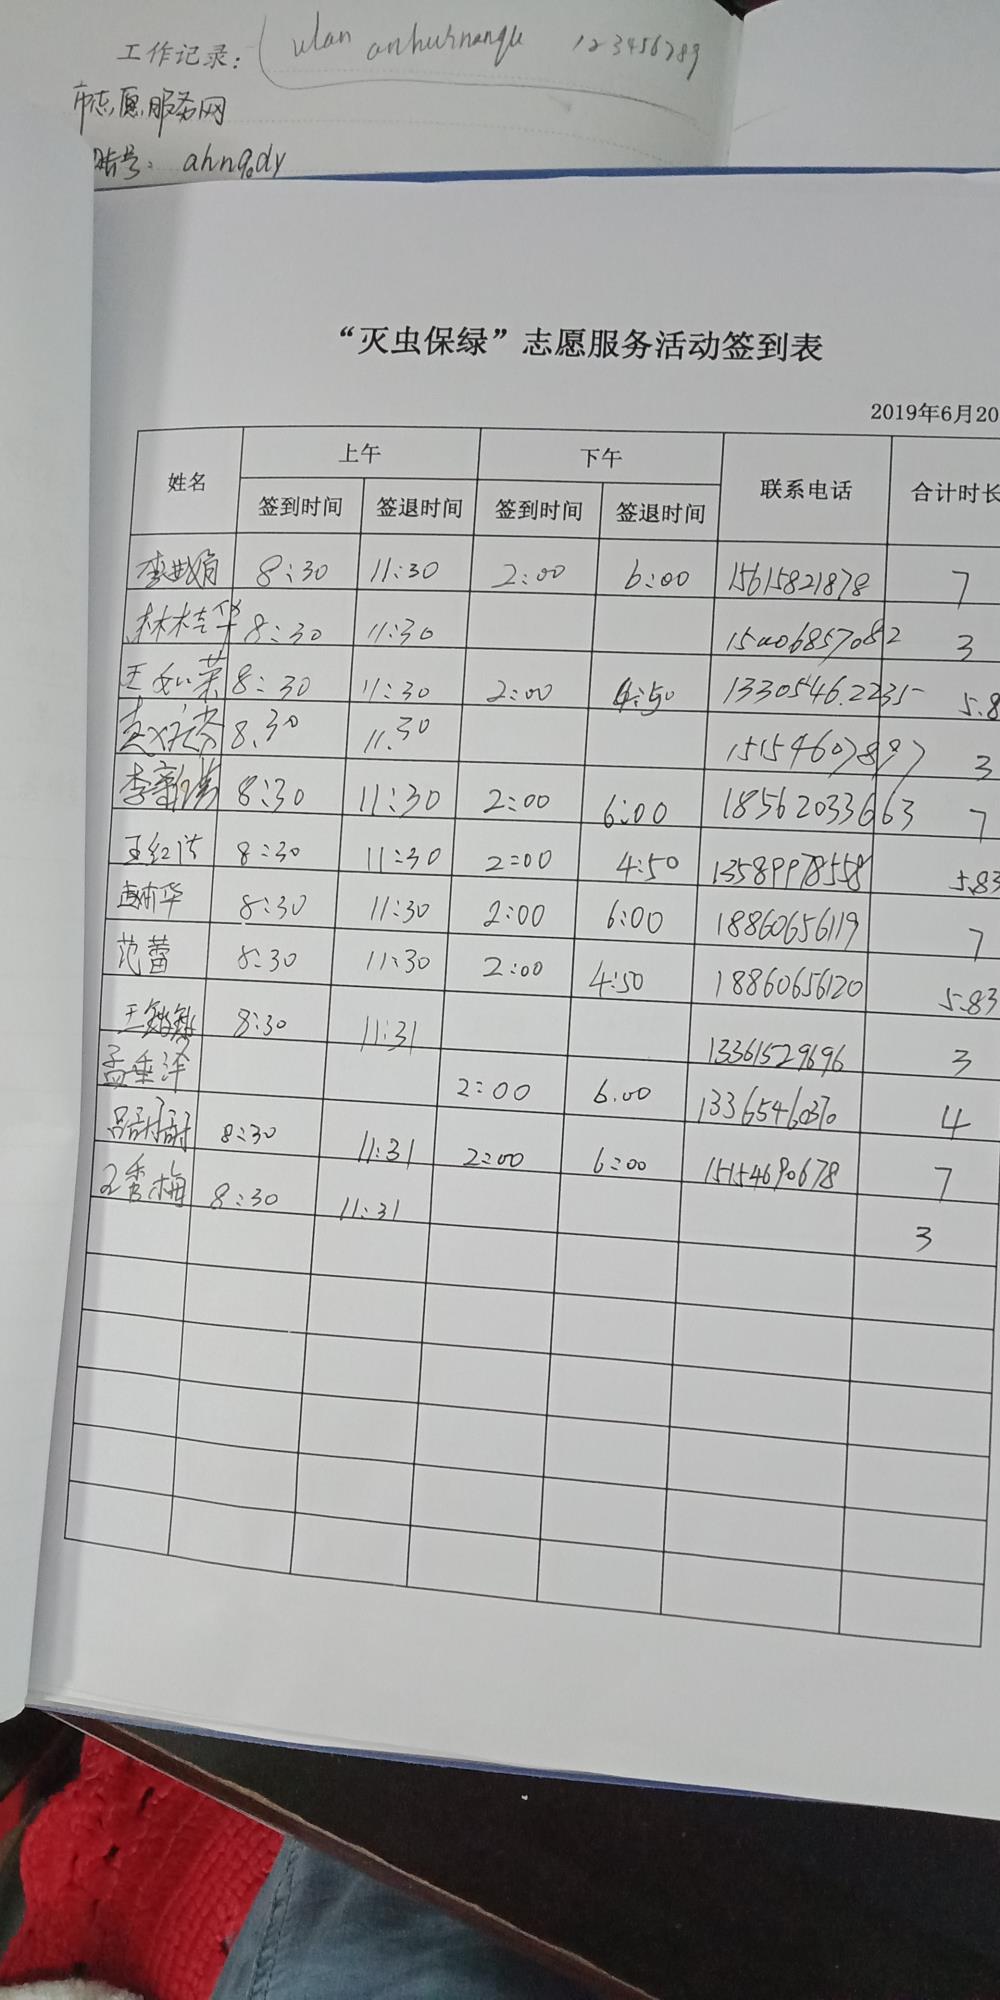 工作记录：
123456789
市志愿服务网
账号：
“灭虫保绿”志愿服务活动签到表
2019年6月20
姓名 上午 下午 联系电话 合计时长
签到时间 签退时间 签到时间 签退时间
8:30 11:30 2:00 6:00 15615821878 7
林桂华 8:30 11:30 3
8:30 11:30 2:00 4:50 13305462235 5.8
8:30 11:30 15154607897 3
8:30 11:30 2:00 6:00 18562033663 7
王红洁 8:30 11:30 2:00 4:50 13589978558 5.83
8:30 11:30 2:00 6:00 18860656119 7
范蕾 8:30 11:30 2:00 4:50 18860656120 5.83
8:30 11:31 13361529696 3
孟垂泽 2:00 6.00 13365460370 4
8:30 11:31 2:00 6:00 15154690678 7
王香梅 8:30 11:31 3